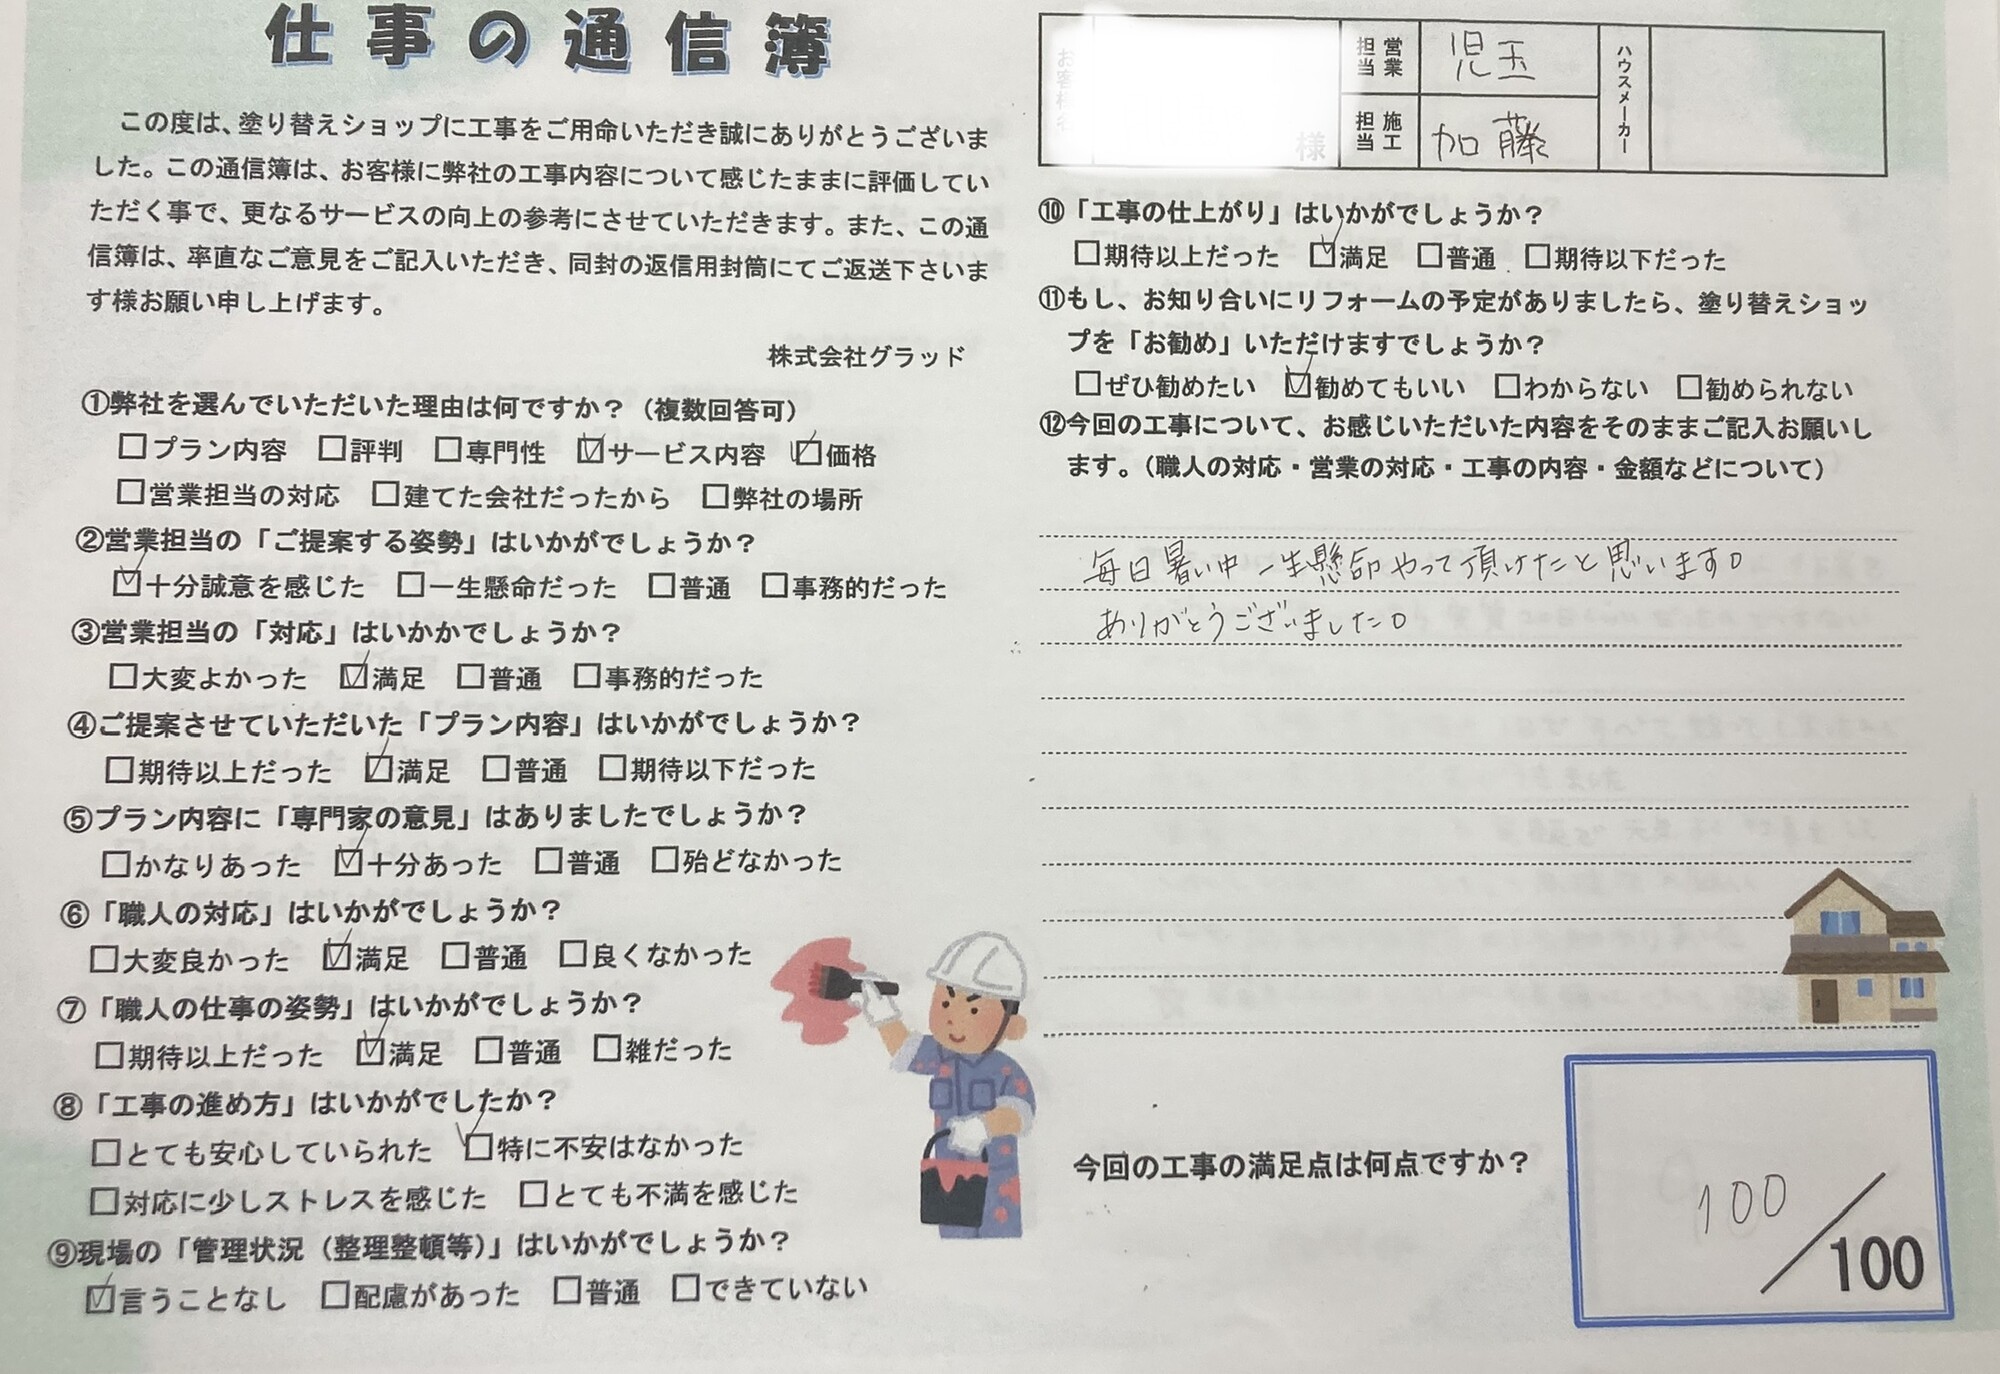 仕事の通信簿
この度は、塗り替えショップに工事をご用命いただき誠にありがとうございま
した。この通信簿は、お客様に弊社の工事内容について感じたままに評価してい
ただく事で、更なるサービスの向上の参考にさせていただきます。また、この通
信簿は、率直なご意見をご記入いただき、同封の返信用封筒にてご返送下さいま
す様お願い申し上げます。
株式会社グラッド
①弊社を選んでいただいた理由は何ですか？（複数回答可）
□プラン内容 □評判 □専門性 ☑サービス内容 ☑価格
□営業担当の対応 □建てた会社だったから □弊社の場所
②営業担当の「ご提案する姿勢」はいかがでしょうか？
☑十分誠意を感じた □一生懸命だった □普通 □事務的だった
③営業担当の「対応」はいかかでしょうか？
□大変よかった ☑満足 □普通 □事務的だった
④ご提案させていただいた「プラン内容」はいかがでしょうか？
□期待以上だった ☑満足 □普通 □期待以下だった
⑤プラン内容に「専門家の意見」はありましたでしょうか？
□かなりあった ☑十分あった □普通 □殆どなかった
⑥「職人の対応」はいかがでしょうか？
□大変良かった ☑満足 □普通 □良くなかった
⑦「職人の仕事の姿勢」はいかがでしょうか？
□期待以上だった ☑満足 □普通 □雑だった
⑧「工事の進め方」はいかがでしたか？
□とても安心していられた ☑特に不安はなかった
□対応に少しストレスを感じた □とても不満を感じた
⑨現場の「管理状況（整理整頓等）」はいかがでしょうか？
☑言うことなし □配慮があった □普通 □できていない
お客様名 様
営業担当 児玉
施工担当 加藤
ハウスメーカー
⑩「工事の仕上がり」はいかがでしょうか？
□期待以上だった ☑満足 □普通 □期待以下だった
⑪もし、お知り合いにリフォームの予定がありましたら、塗り替えショッ
プを「お勧め」いただけますでしょうか？
□ぜひ勧めたい ☑勧めてもいい □わからない □勧められない
⑫今回の工事について、お感じいただいた内容をそのままご記入お願いし
ます。（職人の対応・営業の対応・工事の内容・金額などについて）
毎日暑い中一生懸命やって頂けたと思います。
ありがとうございました。
今回の工事の満足点は何点ですか？
100／100